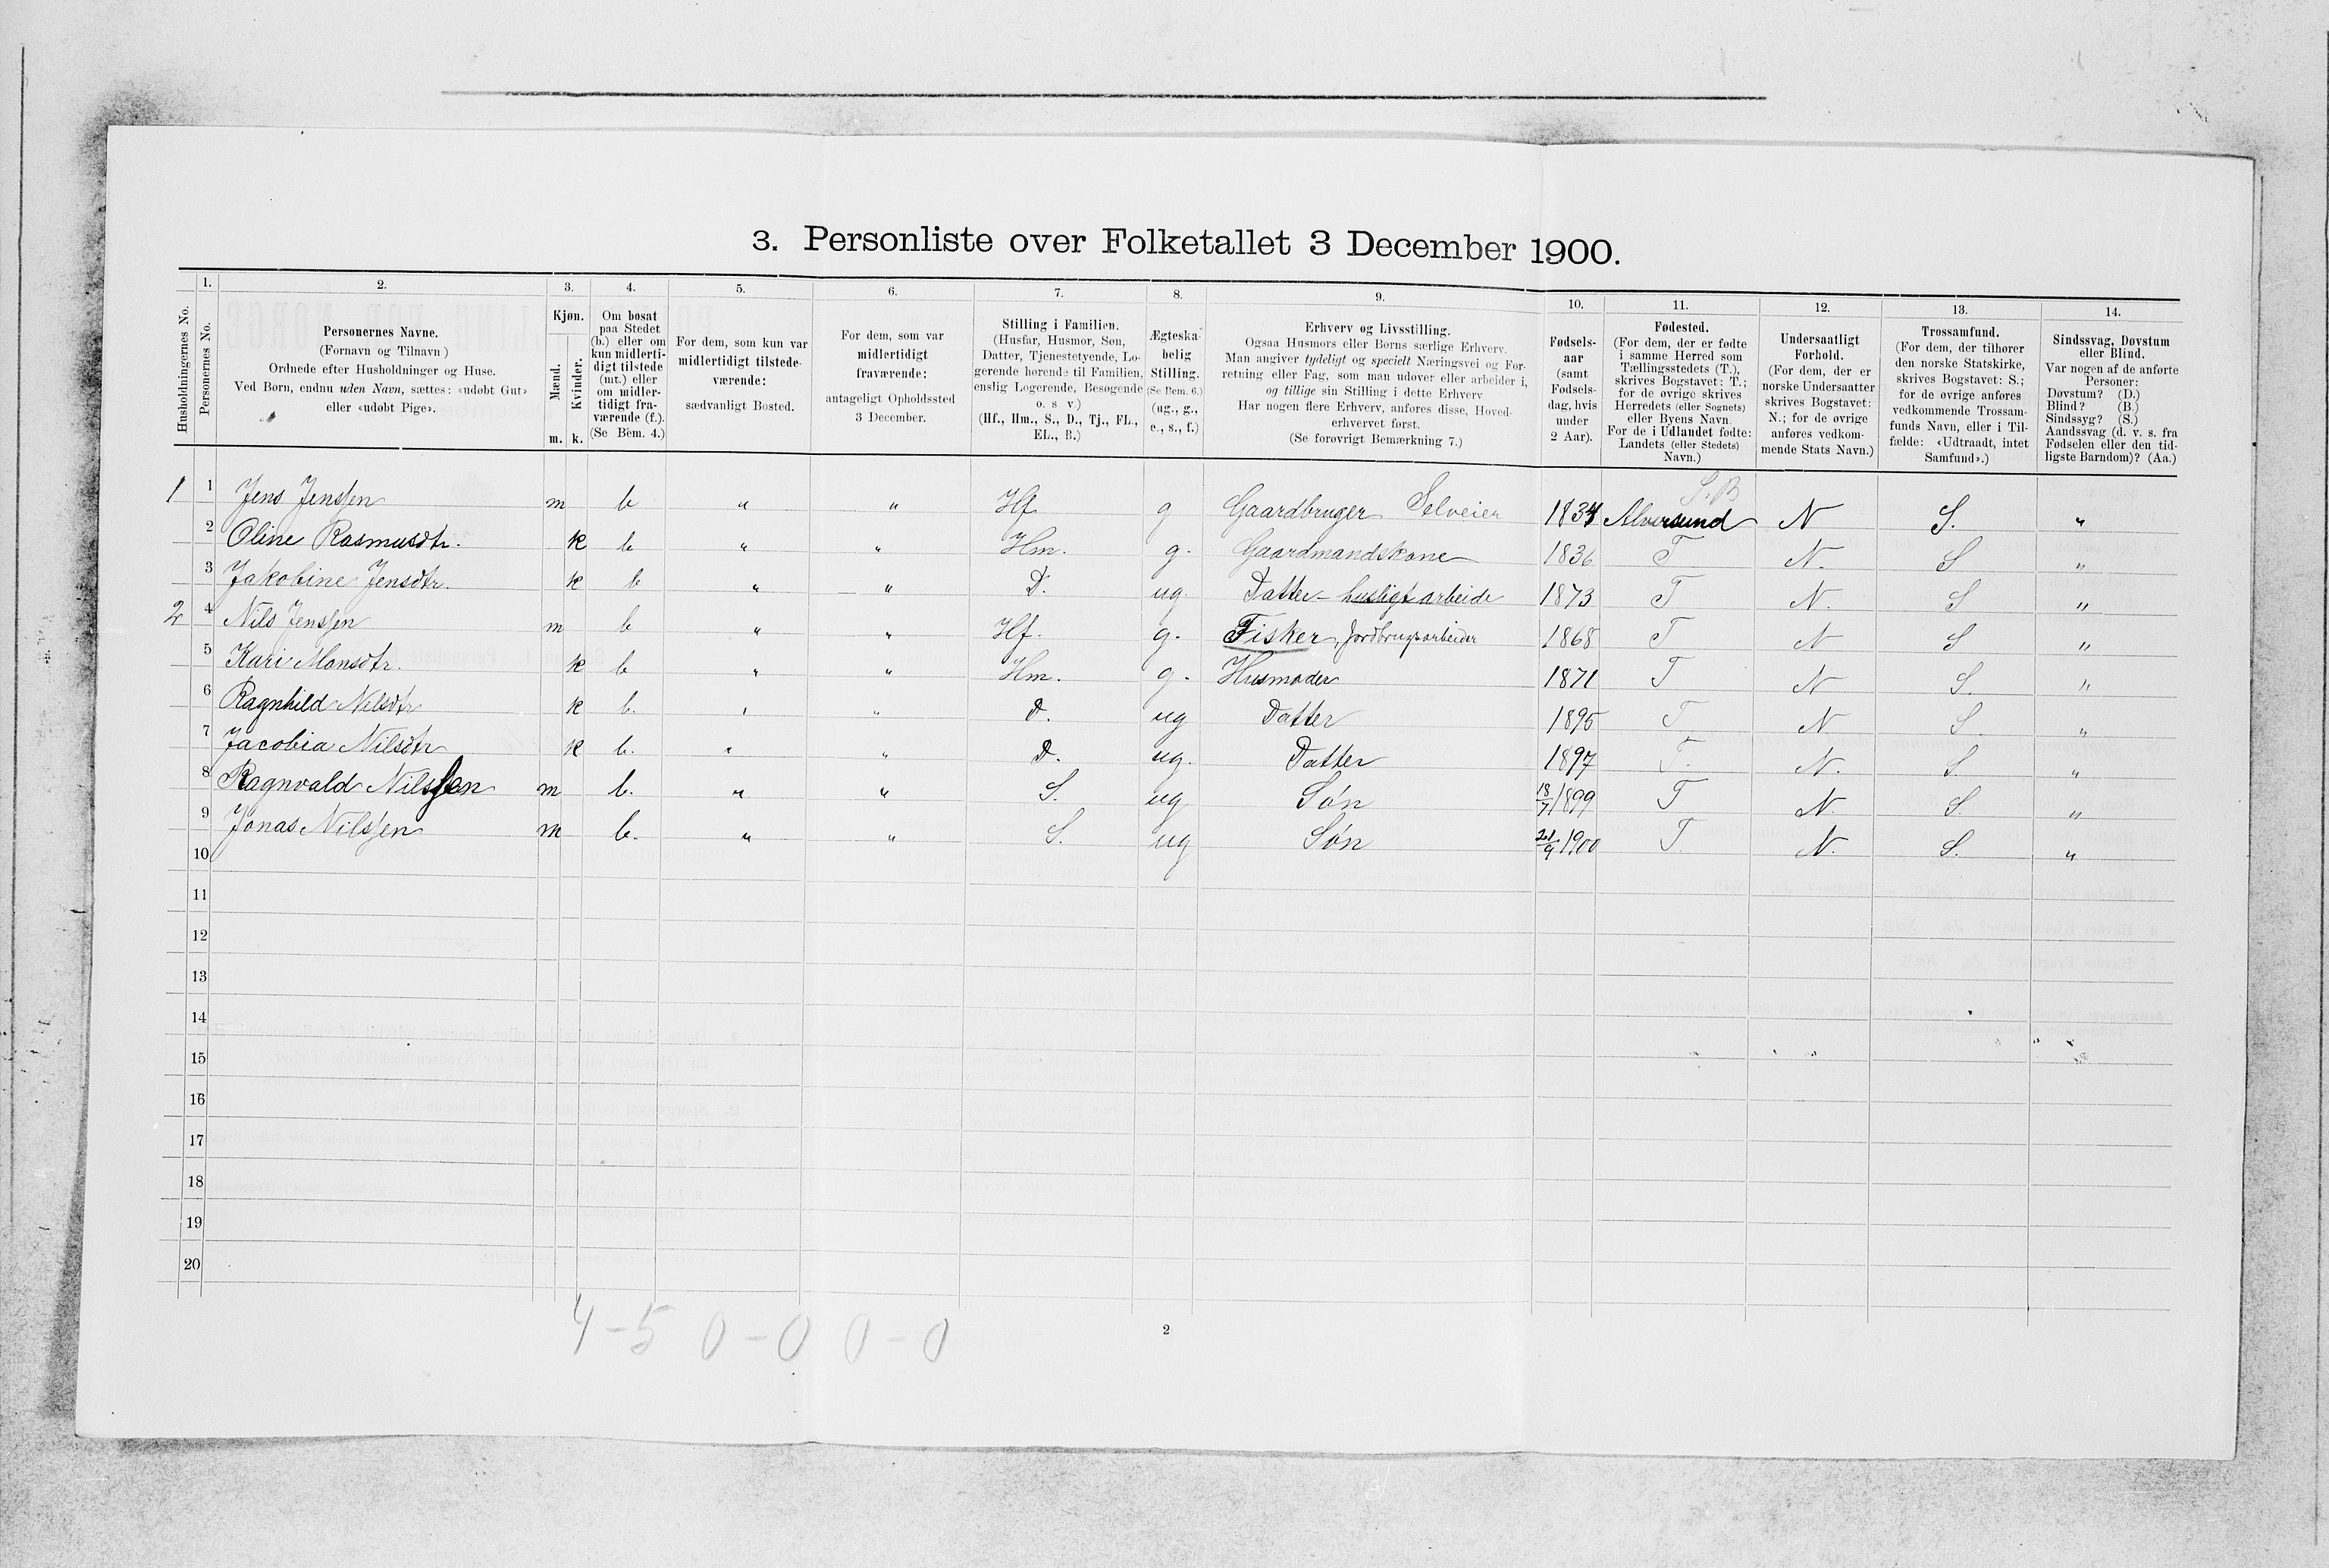 3. Personliste over Folketallet 3 December 1900.
Husholdningernes No.
1.
Personernes No.
2.
Personernes Navne.
(Fornavn og Tilnavn)
Ordnede efter Husholdninger og Huse.
Ved Børn, endnu uden Navn, sættes: «udøbt Gut»
eller «udøbt Pige».
3.
Kjøn.
Mænd.
Kvinder.
m. k.
4.
Om bosat
paa Stedet
(b.) eller om
kun midlerti-
digt tilstede
(mt.) eller
om midler-
tidigt fra-
værende (f.).
(Se Bem. 4.)
5.
For dem, som kun var
midlertidigt tilstede-
værende:
sædvanligt Bosted.
6.
For dem, som var
midlertidigt
fraværende:
antageligt Opholdssted
3 December.
7.
Stilling i Familien.
(Husfar, Husmor, Søn,
Datter, Tjenestetyende, Lo-
gerende hørende til Familien,
enslig Logerende, Besøgende
o. s v.)
(Hf., Hm., S., D., Tj., FL.,
EL., B.)
8.
Ægteska-
belig
Stilling.
(Se Bem. 6.)
(ug., g.,
e., s., f.)
9.
Erhverv og Livsstilling.
Ogsaa Husmors eller Børns særlige Erhverv.
Man angiver tydeligt og specielt Næringsvei og For-
retning eller Fag, som man udøver eller arbeider i,
og tillige sin Stilling i dette Erhverv
Har nogen flere Erhverv, anføres disse, Hoved-
erhvervet først.
(Se forøvrigt Bemærkning 7.)
10.
Fødsels-
aar
(samt
Fødsels-
dag, hvis
under
2 Aar).
11.
Fødested.
(For dem, der er fødte
i samme Herred som
Tællingsstedets (T.),
skrives Bogstavet: T.;
for de øvrige skrives
Herredets (eller Sognets)
eller Byens Navn.
For de i Udlandet fødte:
Landets (eller Stedets)
Navn.)
12.
Undersaatligt
Forhold.
(For dem, der er
norske Undersaatter
skrives Bogstavet:
N.; for de øvrige
anføres vedkom-
mende Stats Navn.)
13.
Trossamfund.
(For dem, der tilhører
den norske Statskirke,
skrives Bogstavet: S.;
for de øvrige anføres
vedkommende Trossam-
funds Navn, eller i Til-
fælde: «Udtraadt, intet
Samfund».)
14.
Sindssvag, Døvstum
eller Blind.
Var nogen af de anførte
Personer:
Døvstum? (D.)
Blind? (B.)
Sindssyg? (S.)
Aandssvag (d. v. s. fra
Fødselen eller den tid-
ligste Barndom)? (Aa.)
S.B
1 1 Jens Jenssen m b " " Hf g Gaardbruger Selveier 1834 Alversund N S. "
2 Oline Rasmusdtr. k b " " Hm. g. Gaardmandskone 1836 T N. S "
3 Jakobine Jensdtr. k b " " D. ug. Datter - husligt arbeide 1873 T N. S "
2 4 Nils Jenssen m b " " Hf. g. Fisker, Jordbrugsarbeider 1868 T N S "
5 Kari Monsdtr. k b " " Hm. g. Husmoder 1871 T N S. "
6 Ragnhild Nilsdtr k b. " " D. ug Datter 1895 T N S. "
7 Jacobia Nilsdtr k b. " " D. ug. Datter 1897 T. N. S. "
8 Ragnvald Nilssen m b. " " S. ug Søn 18/7 1899 T N. S. "
9 Jonas Nilssen m b. " " S. ug Søn 21/9 1900 T. N. S. "
10
11
12
13
14
15
16
17
18
19
20
4-5 0-0 0-0
2